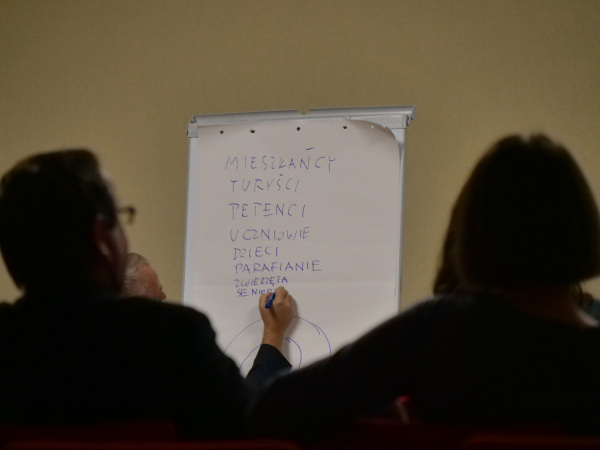 MIESZKAŃCY
TURYŚCI
PETENCI
UCZNIOWIE
DZIECI
PARAFIANIE
ZWIERZĘTA